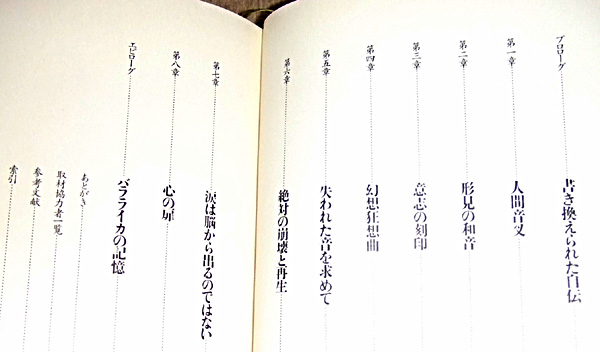 プロローグ 書き換えられた自伝
第一章 人間音叉
第二章 形見の和音
第三章 意志の刻印
第四章 幻想狂想曲
第五章 失われた音を求めて
第六章 絶対の崩壊と再生
第七章 涙は脳から出るのではない
第八章 心の扉
エピローグ バラライカの記憶
あとがき
取材協力者一覧
参考文献
索引